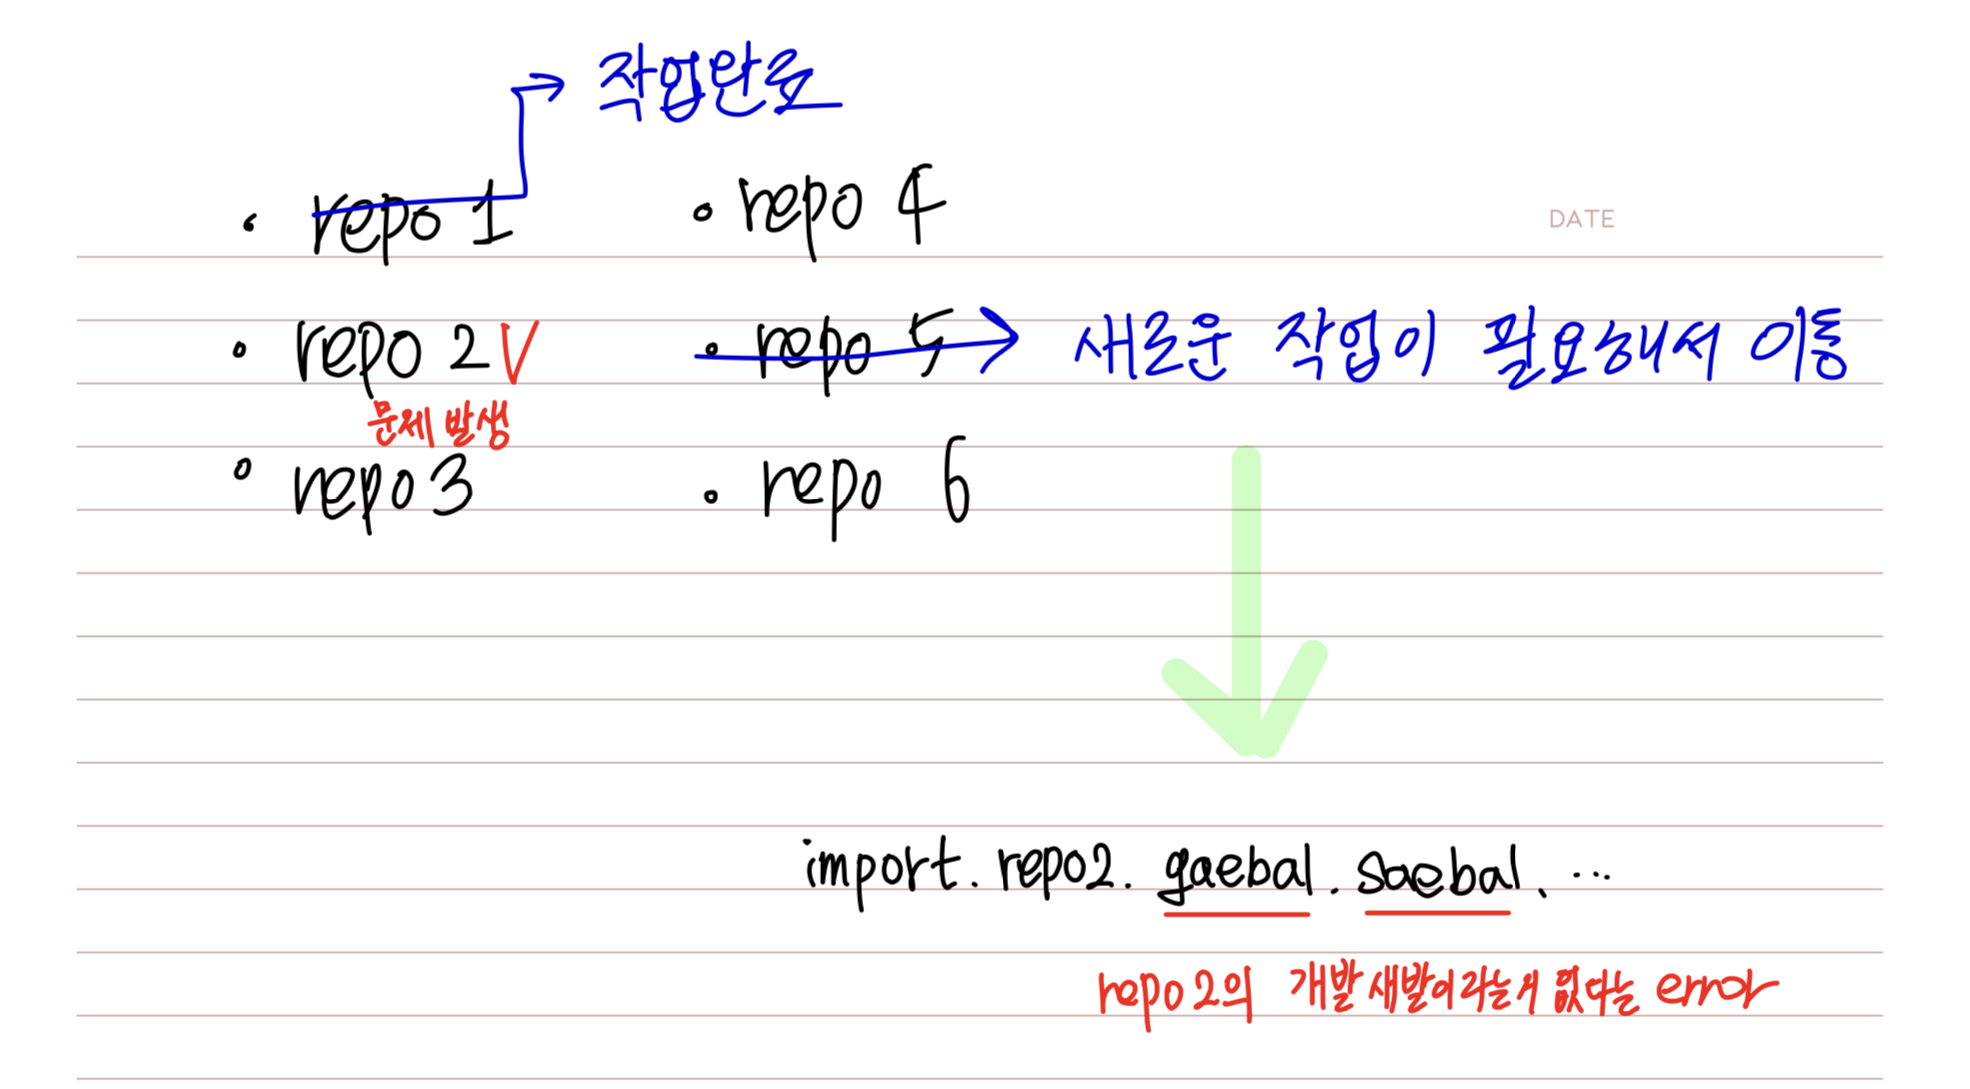 작업완료
• repo 1
• repo 4
DATE
• repo 2 V
• repo 5 → 새로운 작업이 필요해서 이동
문제 발생
• repo 3
• repo 6
import. repo2. gaebal. saebal. ...
repo 2의 개발새발이라는게 없다는 error